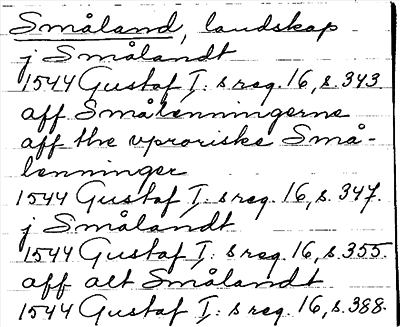 Småland, landskap
j Smålandt
1544 Gustaf I: s reg. 16, s. 343.
aff Smålenningerne
aff the vproriske Små-
lenninger
1544 Gustaf I: s reg. 16, s. 347.
j Smålandt
1544 Gustaf I: s reg. 16, s. 355.
aff alt Smålandt
1544 Gustaf I: s reg. 16, s. 388.